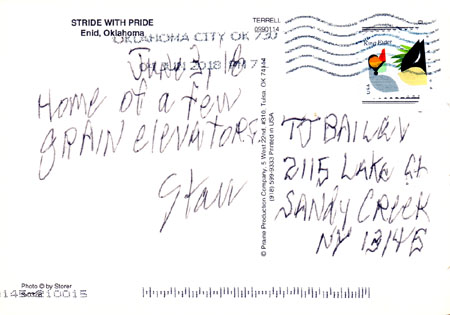 STRIDE WITH PRIDE
Enid, Oklahoma
TERRELL
0390114
OKLAHOMA CITY OK 730
2018 PM 7 L
King Eider
USA
June 3, 18
Home of a few
GRAIN elevators
Stan
TJ BAILEY
2115 LAKE St
SANDY CREEK
NY 13145
© Prairie Production Company, 5 West 22nd, #310, Tulsa, OK 74114
(918) 599-9333 Printed in USA
Photo © by Storer